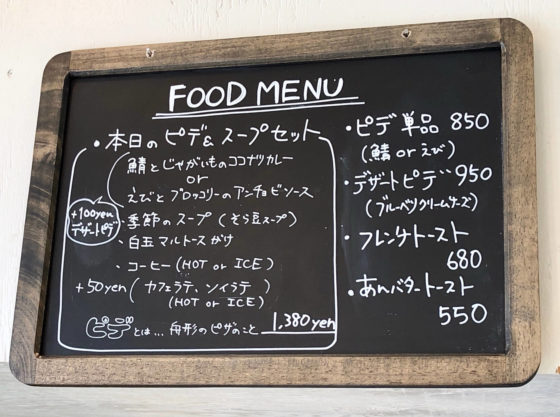 FOOD MENU
・本日のピデ&スープセット
鯖とじゃがいものココナツカレー
or
えびとブロッコリーのアンチョビソース
+100yen
デザートピデ
・季節のスープ(そら豆スープ)
・白玉マルトースがけ
・コーヒー(HOT or ICE)
+50yen(カフェラテ、ソイラテ)
(HOT or ICE)
ピデとは…舟形のピザのこと
1,380yen
・ピデ単品 850
(鯖 or えび)
・デザートピデ 950
(ブルーベリークリームチーズ)
・フレンチトースト
680
・あんバタートースト
550